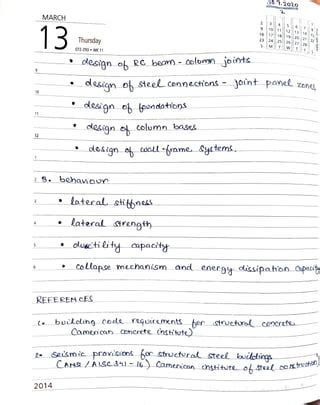 28.7.2020
2
MARCH
13 Thursday
072-293 • WK 11
• design of RC beam - column joints
• design of steel connections - joint panel zones
• design of foundations
• design of column bases
• design of wall-frame systems.
5. behaviour
• lateral stiffness
• lateral strength
• ductility capacity
• collapse mechanism and energy dissipation capacity
REFERENCES
1. building code requirements for structural concrete
(american concrete institute)
2. seismic provisions for structural steel buildings
(ANSI / AISC 341 - 16) (american institute of steel construction)
2014